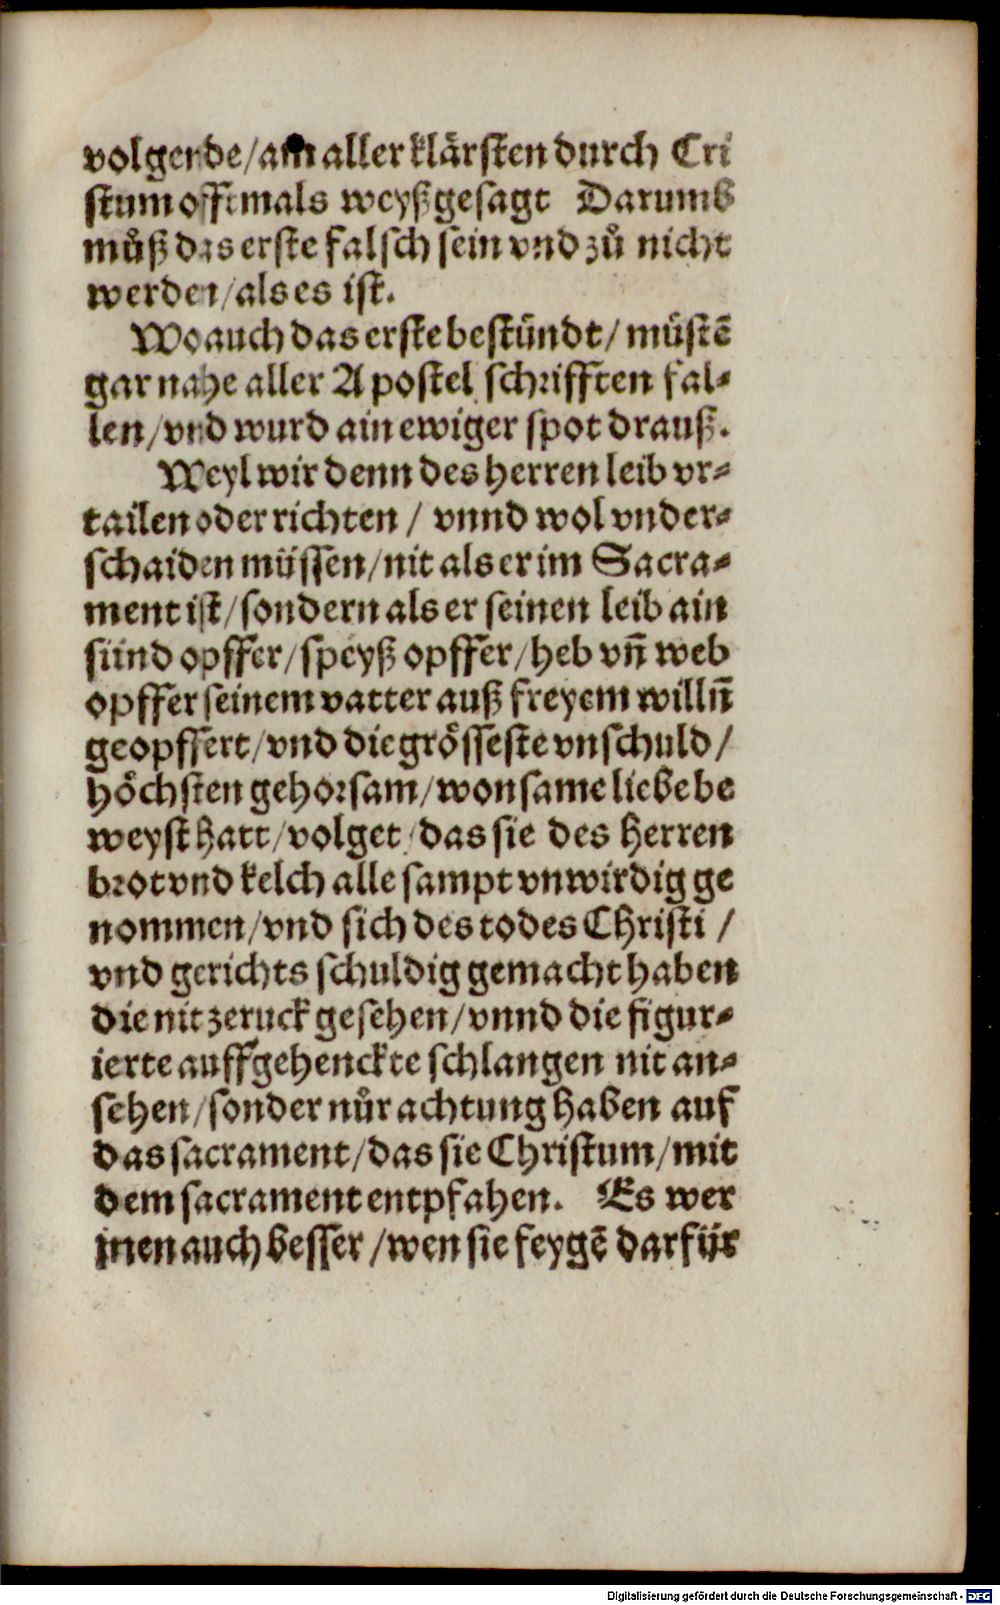 volgende/am aller klårsten durch Cri
stum offtmals weyßgesagt Darumb
můß das erste falsch sein vnd zů nicht
werden/als es ist.
Wo auch das erste bestündt/ müstē
gar nahe aller Apostel schrifften fal⸗
len/vnd wurd ain ewiger spot drauß.
Weyl wir denn des herren leib vr⸗
tailen oder richten / vnnd wol vnder⸗
schaiden müssen/nit als er im Sacra⸗
ment ist/sondern als er seinen leib ain
sünd opffer/speyß opffer/heb vn̄ web
opffer seinem vatter auß freyem willn̄
geopffert/vnd die grösseste vnschuld/
höchsten gehorsam/wonsame liebe be
weyst hatt/volget/das sie des herren
brot vnd kelch alle sampt vnwirdig ge
nommen/vnd sich des todes Christi /
vnd gerichts schuldig gemacht haben
die nit zeruck gesehen/vnnd die figur⸗
ierte auffgehenckte schlangen nit an⸗
sehen/sonder nůr achtung haben auf
das sacrament/das sie Christum/mit
dem sacrament entpfahen. Es wer
jnen auch besser/wen sie feygē darfür
Digitalisierung gefördert durch die Deutsche Forschungsgemeinschaft - DFG